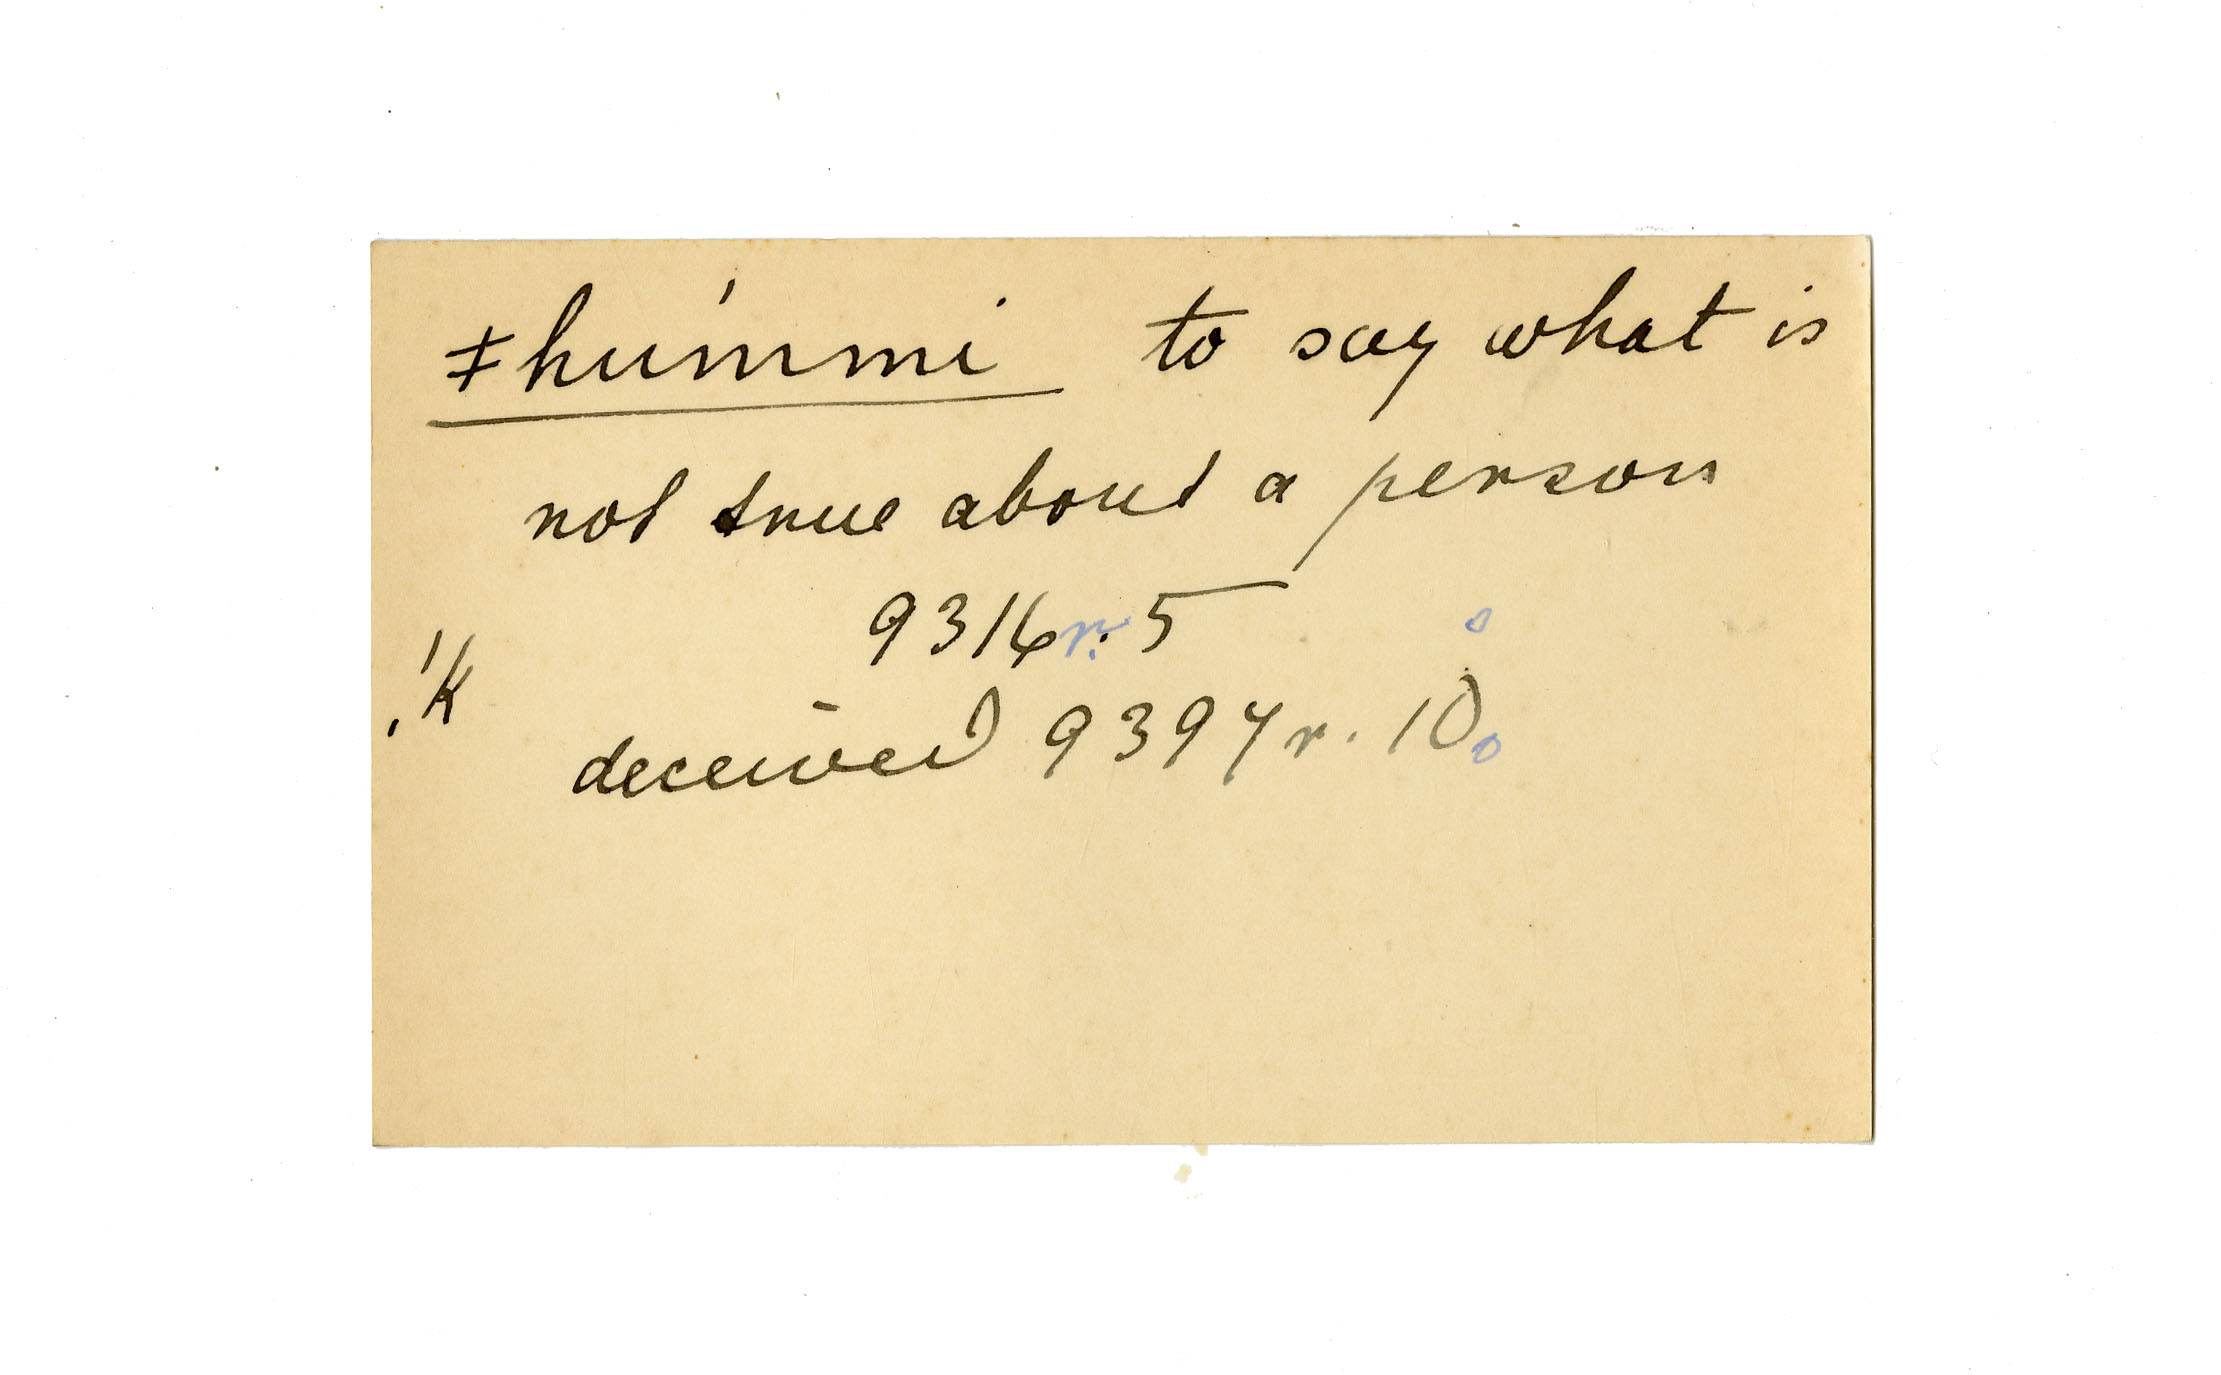 ǂhúmmi to say what is
not true about a person
9316r. 5
!k
deceived 9397r. 10.